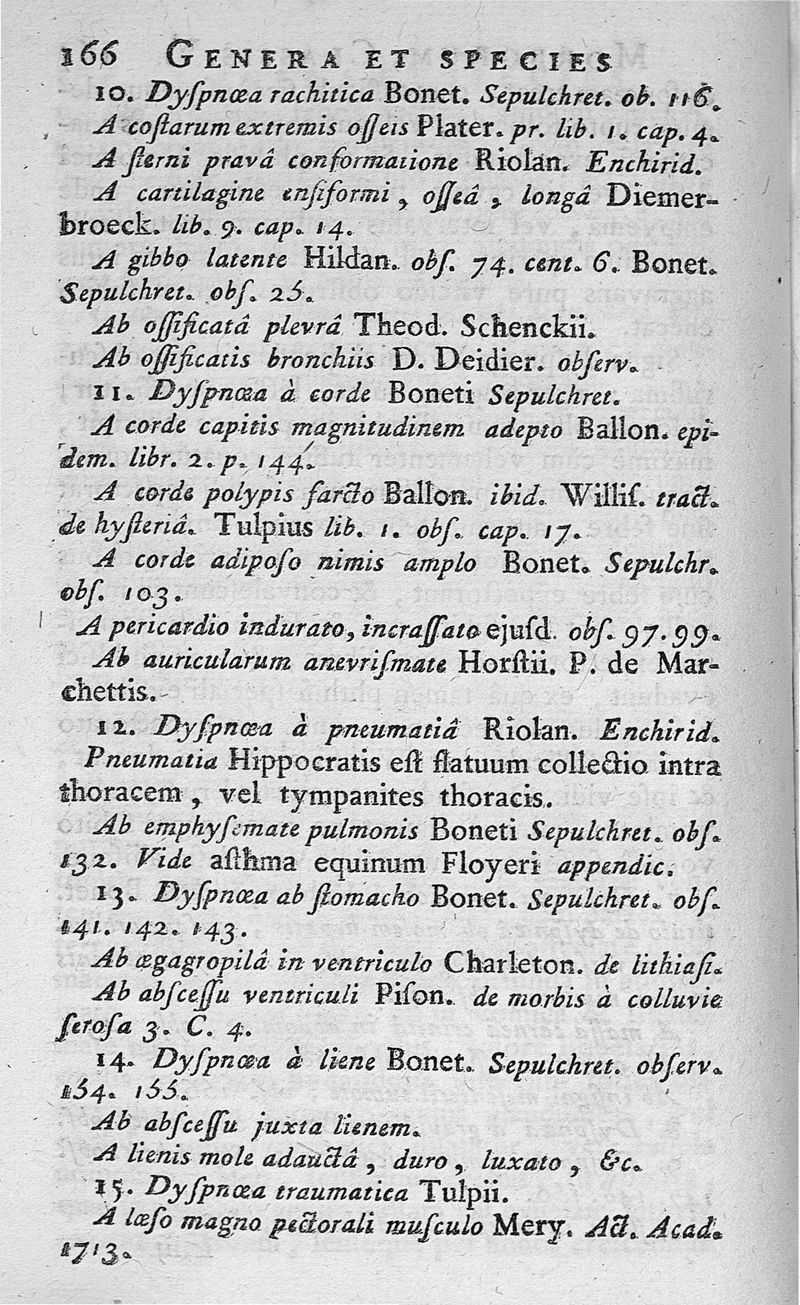 166 GENERA ET SPECIES
10. Dyſpnœa rachitica Bonet. Sepulchret. ob. 116.
A coſtarum extremis oſſeis Plater. pr. lib. 1. cap. 4.
A ſterni pravâ conformatione Riolan. Enchirid.
A cartilagine enſiformi, oſſeâ, longâ Diemer-
broeck. lib. 9. cap. 14.
A gibbo latente Hildan. obſ. 74. cent. 6. Bonet.
Sepulchret. obſ. 25.
Ab oſſificatâ plevrâ Theod. Schenckii.
Ab oſſificatis bronchiis D. Deidier. obſerv.
11. Dyſpnœa à corde Boneti Sepulchret.
A corde capitis magnitudinem adepto Ballon. epi-
dem. libr. 2. p. 144.
A corde polypis farcto Ballon. ibid. Williſ. tract.
de hyſteriâ. Tulpius lib. 1. obſ. cap. 17.
A corde adipoſo nimis amplo Bonet. Sepulchr.
obſ. 103.
A pericardio indurato, incraſſato ejuſd. obſ. 97.99.
Ab auricularum anevriſmate Horſtii. P. de Mar-
chettis.
12. Dyſpnœa à pneumatiâ Riolan. Enchirid.
Pneumatia Hippocratis eſt flatuum collectio intra
thoracem, vel tympanites thoracis.
Ab emphyſemate pulmonis Boneti Sepulchret. obſ.
132. Vide aſthma equinum Floyeri appendic.
13. Dyſpnœa ab ſtomacho Bonet. Sepulchret. obſ.
141. 142. 143.
Ab ægagropilâ in ventriculo Charleton. de lithiaſi.
Ab abſceſſu ventriculi Piſon. de morbis à colluvie
ſeroſa 3. C. 4.
14. Dyſpnœa à liene Bonet. Sepulchret. obſerv.
154. 155.
Ab abſceſſu juxta lienem.
A lienis mole adauctâ, duro, luxato, &c.
15. Dyſpnœa traumatica Tulpii.
A læſo magno pectorali muſculo Mery. Act. Acad.
1713.